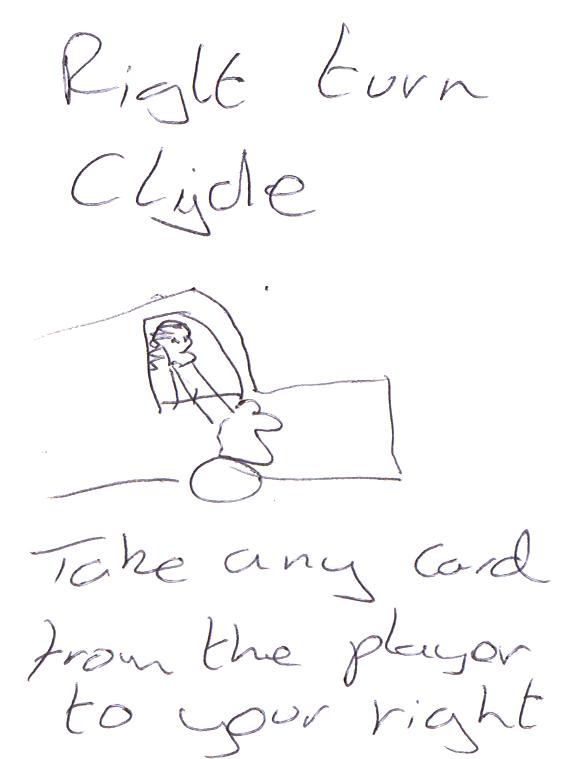 Right turn
Clyde
Take any card
from the player
to your right